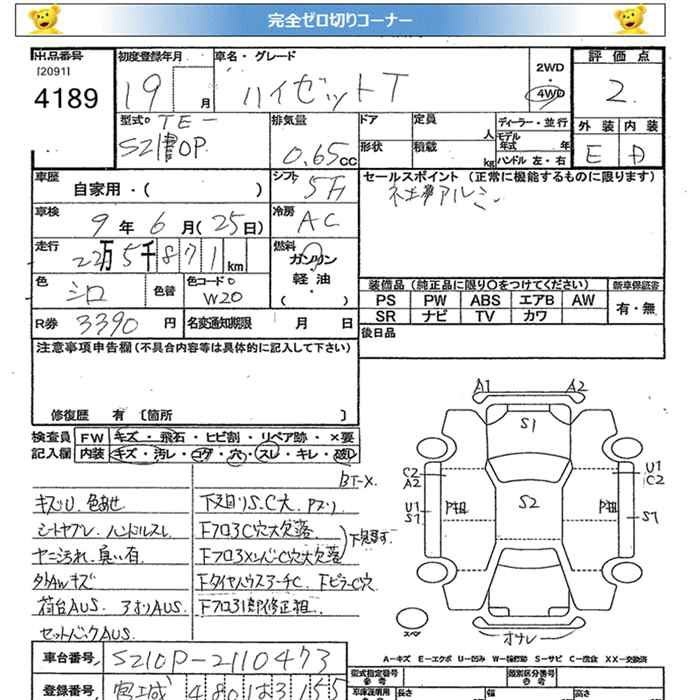 完全ゼロ切りコーナー
出品番号
[2091]
4189
初度登録年月
19 月
車名・グレード
ハイゼットT
2WD
・
4WD
評価点
2
型式 TE-
S210P
排気量
0.65cc
ドア
定員
人
形状
積載
kg
ディーラー・並行
モデル年式 年
ハンドル 左・右
外装 内装
E D
車歴
自家用・( )
シフト
5F
セールスポイント (正常に機能するものに限ります)
社外アルミ
車検
9年6月(25日)
冷房
AC
走行
22万5千871km
燃料
ガソリン
・
軽油
( )
色
シロ
色替
色コードo
W20
装備品(純正品に限り○をつけてください)
新車保証書
PS PW ABS エアB AW
SR ナビ TV カワ
有・無
R券 3390円
名変通知期限 月 日
後日品
注意事項申告欄(不具合内容等は具体的に記入して下さい)
修復歴 有 〔箇所 〕
検査員記入欄
FW キズ・飛石・ヒビ割・リペア跡・×要
内装 キズ・汚レ・コゲ・穴・スレ・キレ・破レ
キズU、色あせ
シートヤブレ、ハンドルスレ
ヤニ汚れ、臭い有
外AWキズ
荷台AUS、アオリAUS
セットバックAUS
下フロアC穴大欠落
下タイヤハウスアーチC
A1 A2
S1
S2
C2
A2
U1
S7
U1
C2
S7
スペア
オサレ
A-キズ E-エクボ U-凹み W-補修跡 S-サビ C-腐食 XX-交換済
車台番号 S210P-2110473
登録番号 宮城 480 183155
型式指定番号
類別区分番号
長さ 幅 高さ